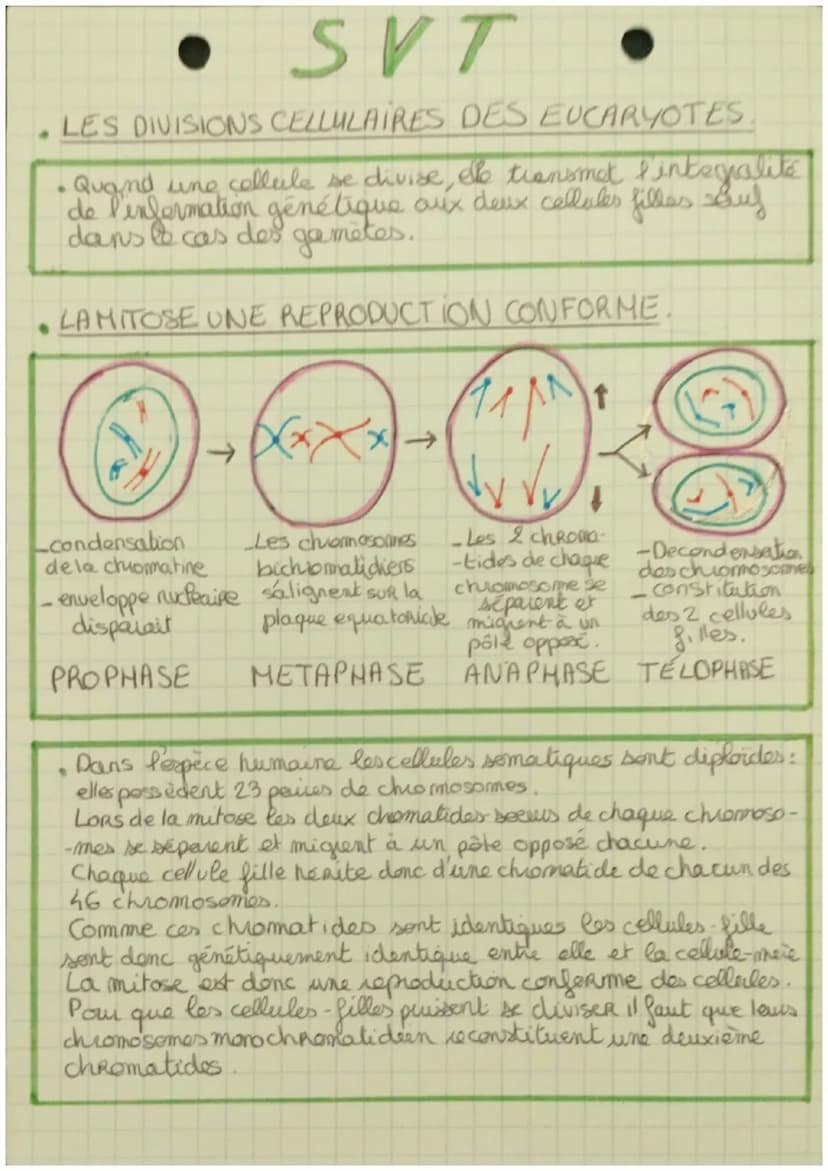 SVT
. LES DIVISIONS CELLULAIRES DES EUCARYOTES.
. Quand une cellule se divise, elle transmet l'integralité
de l'information génétique aux deux cellules filles sauf
dans le cas des gamètes.
. LA MITOSE UNE REPRODUCTION CONFORME.
-condensation
de la chromatine
- enveloppe nucleaire
disparait
PROPHASE
-Les chromosomes
bichromatidiens
s'alignent sur la
plaque equatoriale
METAPHASE
-Les 2 chroma-
-tides de chaque
chromosome se
séparent et
migrent à un
pôle opposé.
ANAPHASE
-Decondensation
des chromosomes
- constitution
des 2 cellules
filles.
TÉLOPHASE
. Dans l'espèce humaine les cellules somatiques sont diploïdes:
elles possèdent 23 paires de chromosomes.
Lors de la mitose les deux chromatides soeurs de chaque chromoso-
-mes se séparent et migrent à un pôle opposé chacune.
Chaque cellule fille hérite donc d'une chromatide de chacun des
46 chromosomes.
Comme ces chromatides sont identiques les cellules-fille
sont donc génétiquement identique entre elle et la cellule-mère
La mitose est donc une reproduction conforme des cellules.
Pour que les cellules-filles puissent se diviser il faut que leurs
chromosomes monochromatidien reconstituent une deuxième
chromatides.